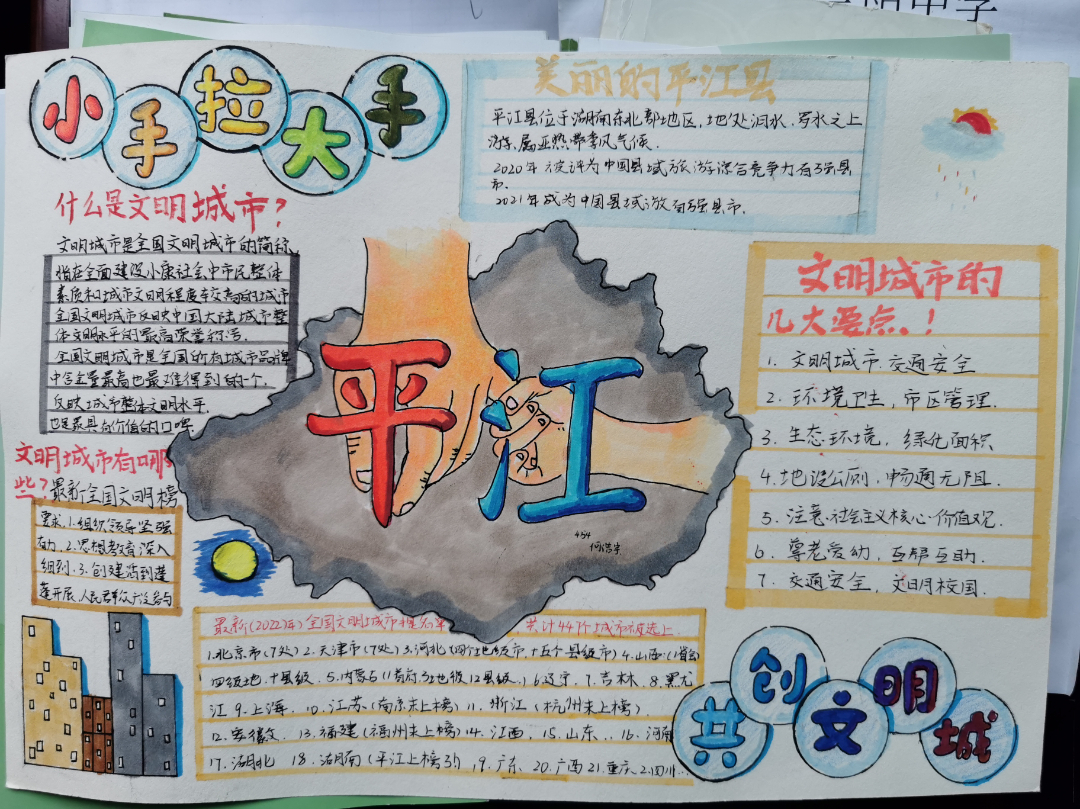 小手拉大手
美丽的平江县
平江县位于湖南东北部地区,地处汨水、罗水之上
游,属亚热带季风气候.
2020年被评为中国县域旅游综合竞争力百强县
市.
2021年成为中国县域游百强县市.
什么是文明城市?
文明城市是全国文明城市的简称,
指在全面建设小康社会中市民整体
素质和城市文明程度较高的城市
全国文明城市反映中国大陆城市整
体文明水平的最高荣誉称号.
全国文明城市是全国所有城市品牌
中含金量最高也最难得到的个.
反映城市整体文明水平.
也是最具有价值的口碑
文明城市有哪
些?最新全国文明榜
要求.1.组织领导坚强
有力.2.思想教育深入
细则.3.创建活动蓬
蓬开展.人民群众广泛参与
平江
454
文明城市的
几大要点.!
1. 文明城市,交通安全
2. 环境卫生,市区管理.
3. 生态环境,绿化面积
4. 地设公厕,畅通无阻
5. 注意.社会主义核心价值观.
6. 尊老爱幼,互帮互助.
7. 交通安全,文明校园.
最新(2022年)全国文明城市提名单 共计447个城市被选上.
1.北京市(7处)2.天津市(7处)3.河北(四个地级市,十五个县级市)4.山西(1省会
四级地.十县级. 5.内蒙古(1首府.3地级.12县级.)6.辽宁.7.吉林.8.黑龙
江 9.上海. 10.江苏(南京未上榜)11.浙江(杭州未上榜)
12.安徽 13.福建(福州未上榜)14.江西. 15.山东. 16.河南
17.湖北 18.湖南(平江上榜了!)19.广东.20.广西21.重庆.22.四川
共创文明城